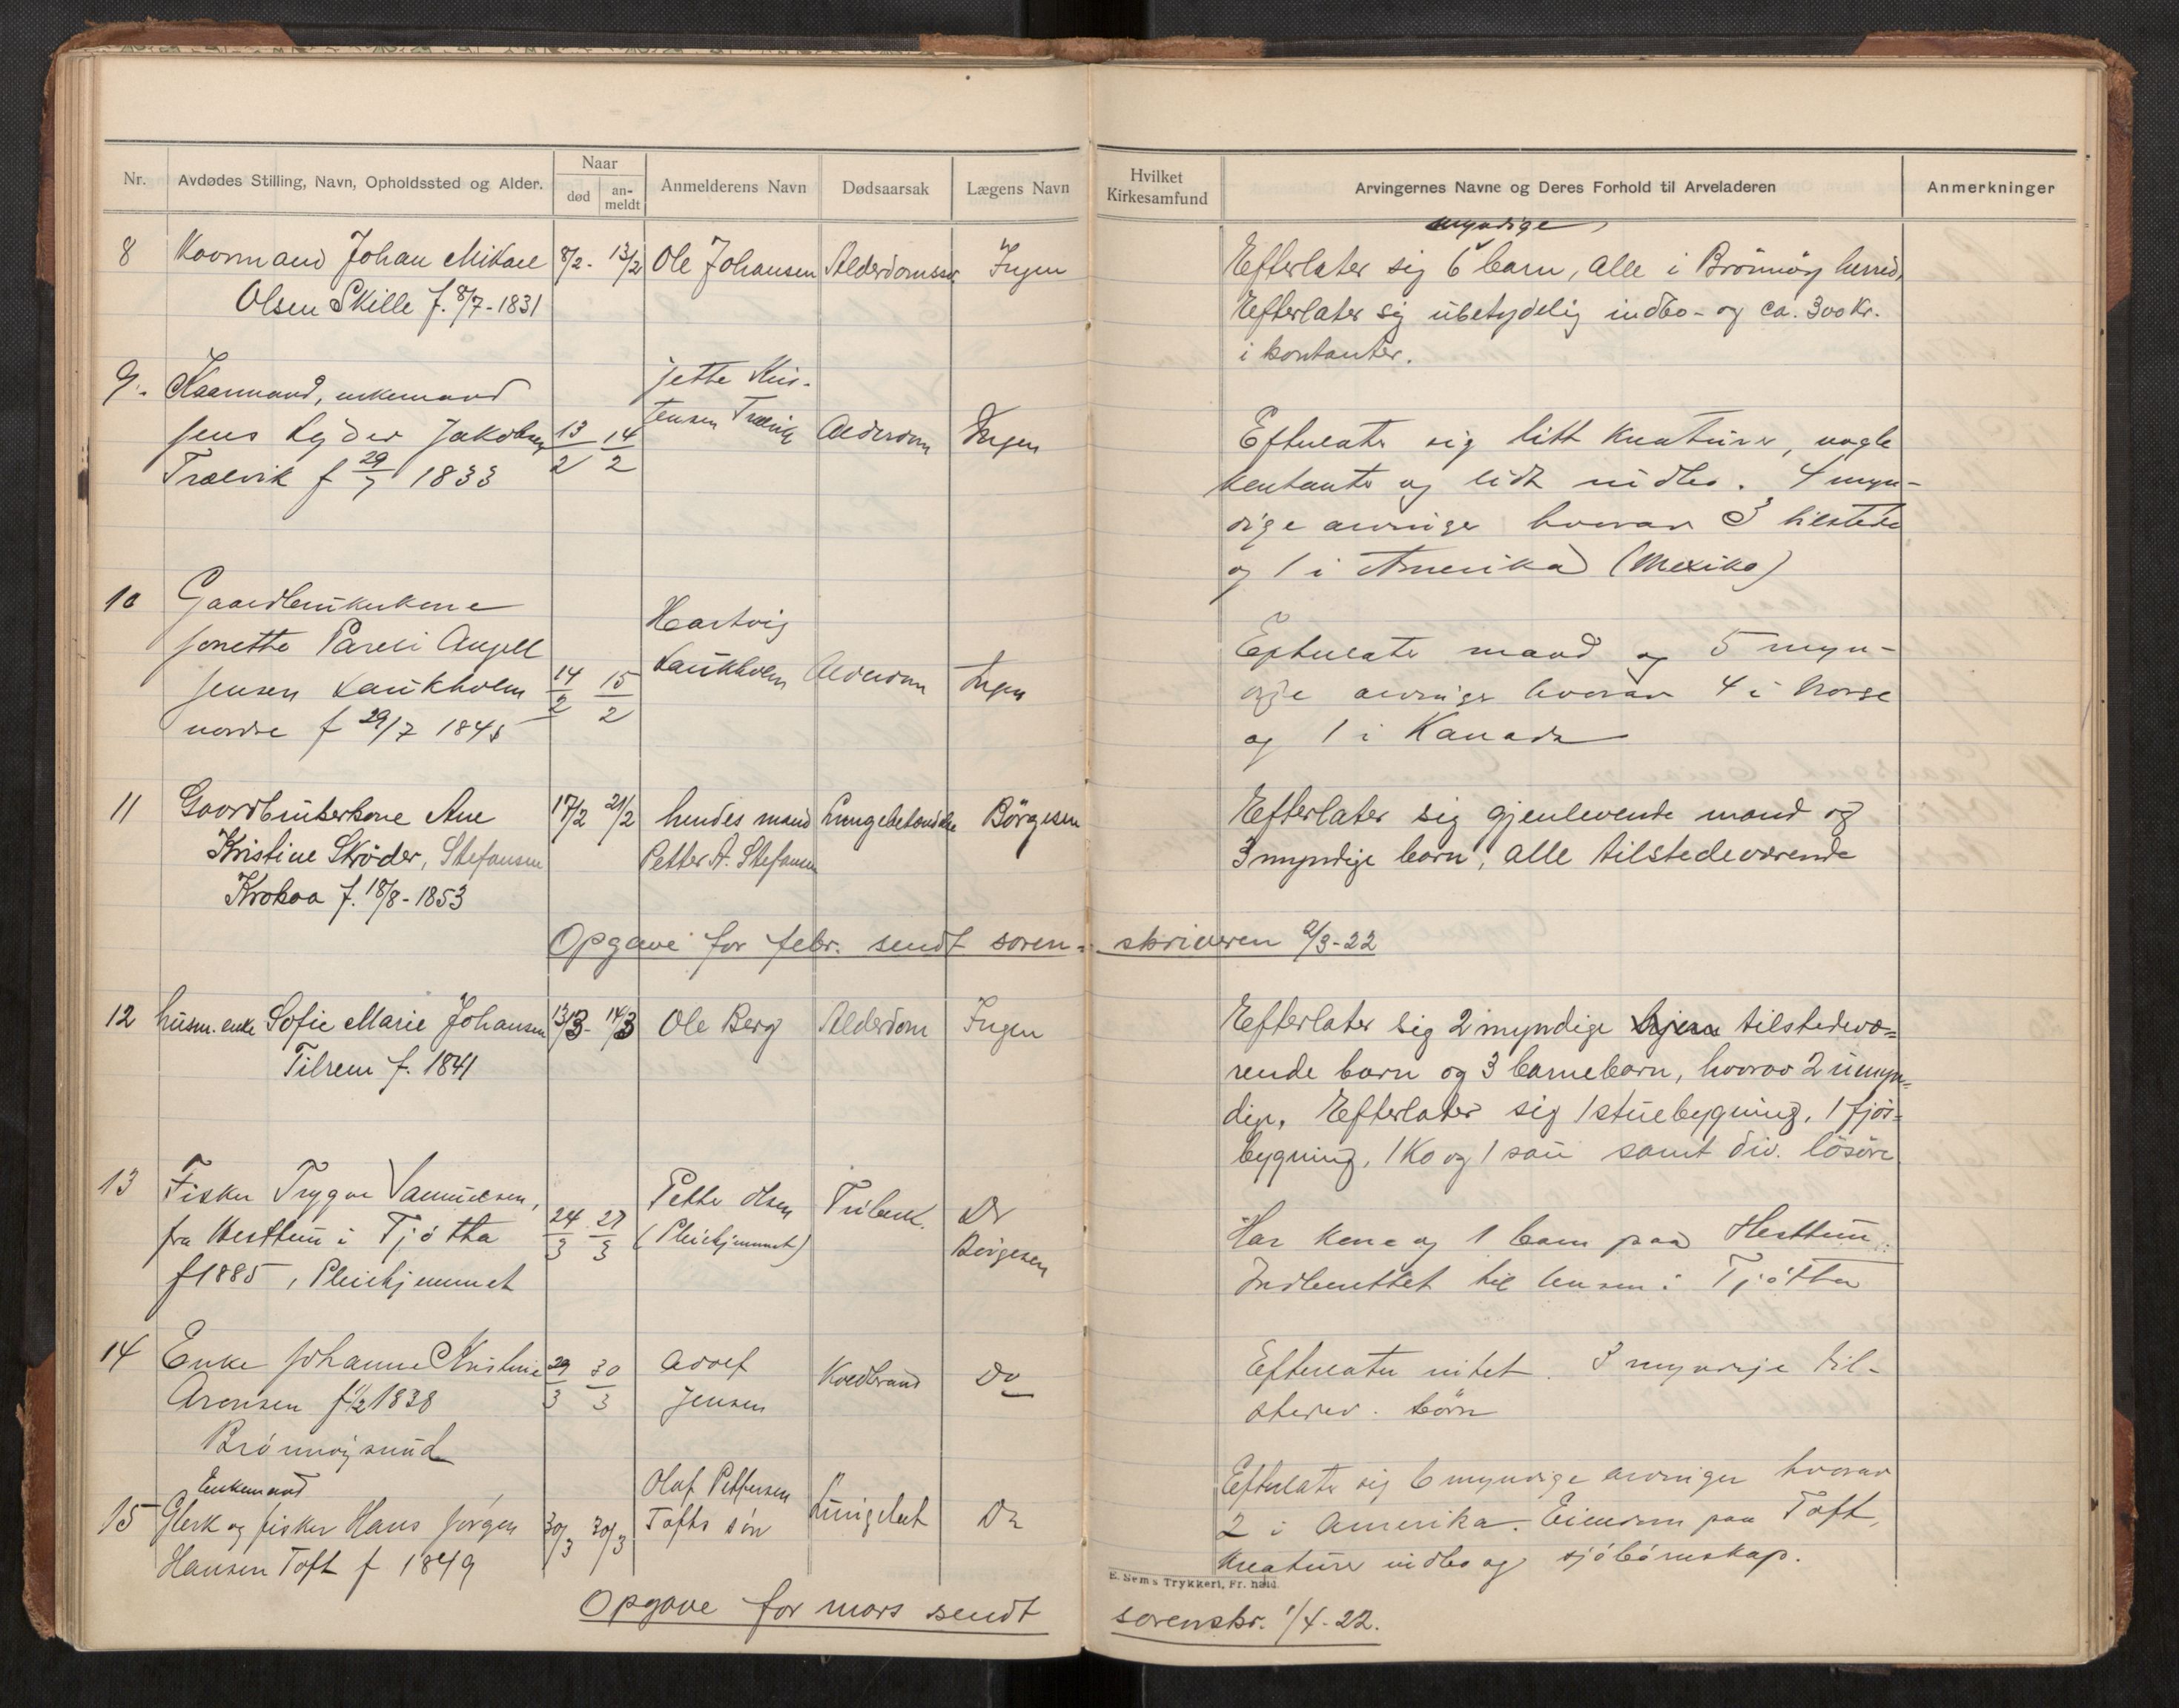 Nr.
Avdødes Stilling, Navn, Opholdssted og Alder.
Naar
død
an-
meldt
Anmelderens Navn
Dødsaarsak
Lægens Navn
Hvilket
Kirkesamfund
Arvingernes Navne og Deres Forhold til Arveladeren
Anmerkninger
8 Kaarmand Johan Mikael 8/2- 13/2 Ole Johansen Alderdomssv. Ingen
Olsen Skille f. 8/7-1831
myndige
Efterlater sig 6 barn, alle i Brönnöy herred,
Efterlater sig ubetydelig indbo- og ca. 300 kr.
i kontanter.
9. Kaarmand, enkemand
Jens Lyder Jakobsen 13/2 14/2
Trælvik f 29/7 1833
Jette Kris-
tensen Trælvik Alderdom Ingen
Efterlater sig litt kreaturer, nogle
kontanter og lidt indbo. 4 myn-
dige arvinger hvorav 3 tilstede
og 1 i Amerika (Mexiko)
10 Gaardbrukerkone
Jonette Pareli Angell
Jensen Laukholm 14/2 15/2
nordre f 29/7 1845
Hartvig
Laukholm Alderdom Ingen
Efterlater mand og 5 myn-
dige arvinger hvorav 4 i Norge
og 1 i Kanada
11 Gaardbrukerkone Ane 17/2 21/2 hendes mand Lungebetændelse Börgesen
Kristine Skrøder, Stefansen Petter A. Stefansen
Krokaa f. 18/8-1853
Efterlater sig gjenlevende mand og
3 myndige barn, alle tilstedeværende
Opgave for febr. sendt soren=skriveren 2/3-22
12 husm. enke Sofie Marie Johansen 13/3- 14/3 Ole Berg Alderdom Ingen
Tilrem f. 1841
Efterlater sig 2 myndige tilstedevæ=
rende barn og 3 barnebarn, hvorav 2 umyn=
dige. Efterlater sig 1 stuebygning, 1 fjös=
bygning, 1 ko og 1 sau samt div. lösöre
13 Fisker Trygve Samuelsen,
fra Hesttun i Tjøtta 24/3 27/3
f 1885, Pleiehjemmet
Petter Olsen
(Pleiehjemmet) Tuberk. Dr
Börgesen
Har kone og 1 barn paa Hesttun.
Indberettet til lensm i Tjøtta
14 Enke Johanne Kristine 29/3 30/3 Adolf
Aronsen f 1/2 1838 Jensen Koldbrand Do
Brønnøysund
Efterlater intet. 3 myndige til-
stedev. börn
Enkemand
15 Gbrk og fisker Hans Jørgen 30/3 30/3
Hansen Toft f 1849
Olaf Pettersen
Tofts søn Lungebet Do
Efterlater sig 6 myndige arvinger hvorav
2 i Amerika. Eiendom paa Toft,
kreaturer indbo og sjöbruneskap.
E. Sems Trykkeri, Fr.hald.
Opgave for mars sendt sorenskr. 1/4-22.